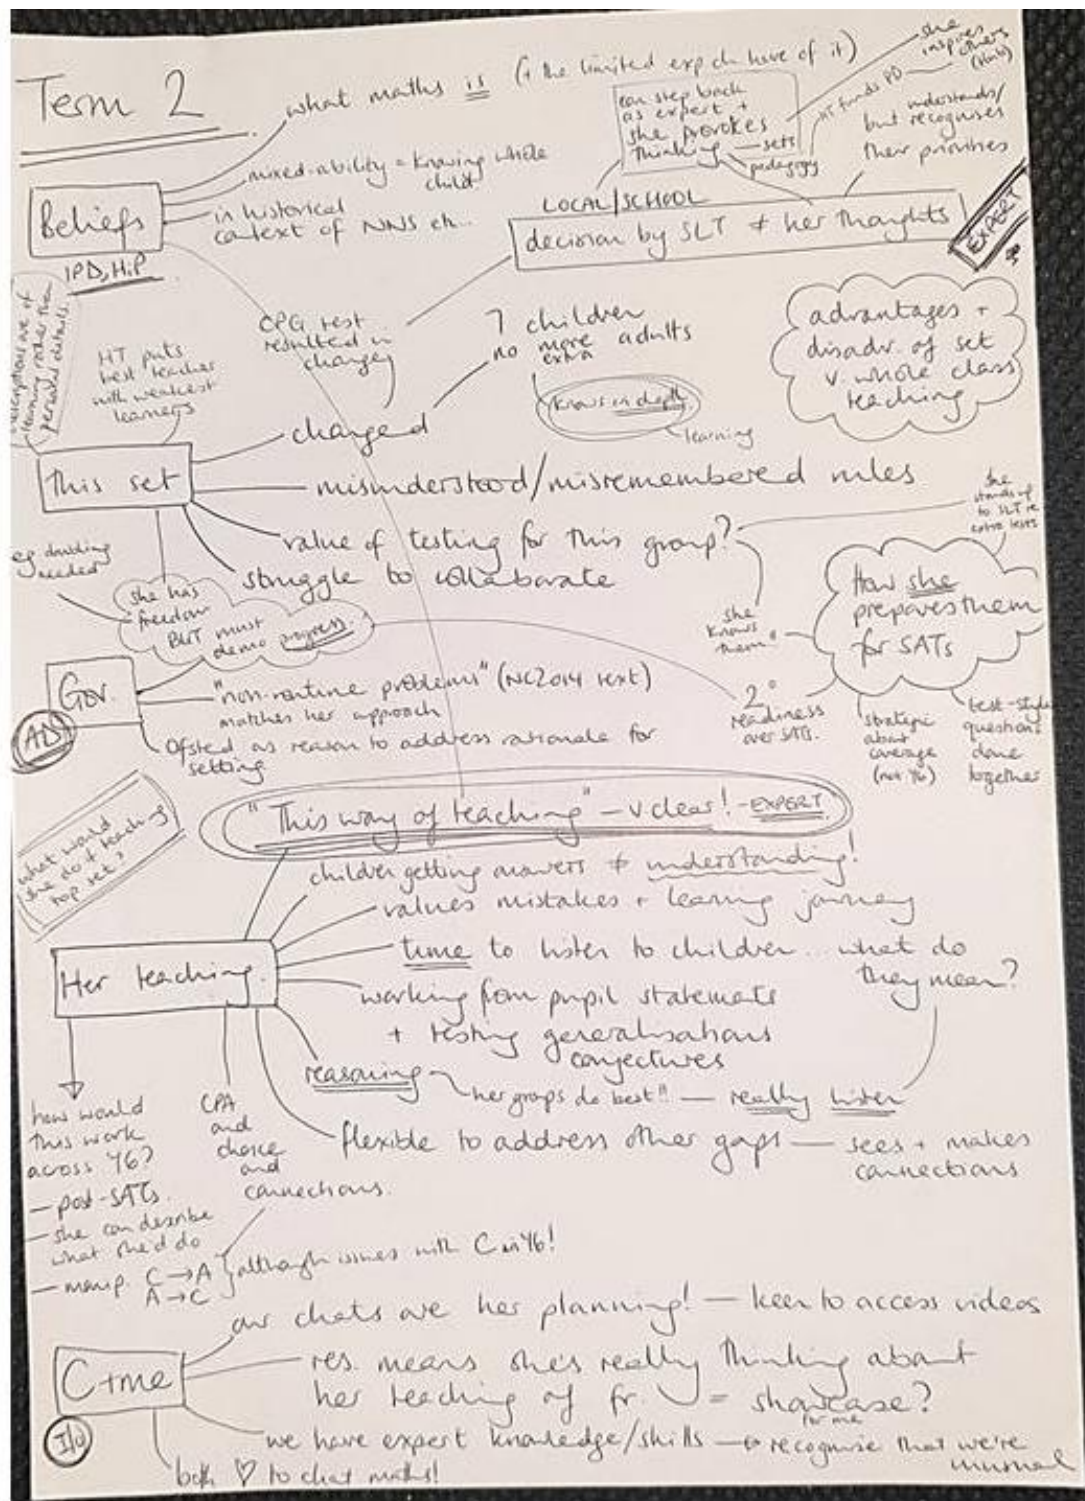 Term 2
what maths is (+ the limited exp ch have of it)
mixed-ability = knowing whole
child
in historical
context of NNS etc...
Beliefs
IPD, HiP
she
inspires
others
(Hub)
HT funds PD
can step back
as expert +
she provokes
thinking — sets
pedagogy
understands/
but recognises
their priorities
LOCAL/SCHOOL
decision by SLT ≠ her thoughts
EXPERT
descriptions are of
learning rather than
personal details.
HT puts
best teacher
with weakest
learners
CPG test
resulted in
changes
7 children
no more adults
extra
knows in depth
learning
advantages +
disadv. of set
v. whole class
teaching
This set
changed
misunderstood/misremembered rules
value of testing for this group?
struggle to collaborate
she
stands up
to SLT re
extra tests
eg doubling
needed
she has
freedom
BUT must
demo progress
she
knows
them"
How she
prepares them
for SATs
2°
readiness
over SATs.
strategic
about
coverage
(not Y6)
test-style
questions
done
together
Gov.
AD
"non-routine problems" (NC2014 text)
matches her approach
Ofsted as reason to address rationale for
setting
what would
she do if teaching
top set?
"This way of teaching" — v clear! — EXPERT
children getting answers ≠ understanding!
values mistakes + learning journey
time to listen to children ... what do
they mean?
Her teaching.
working from pupil statements
+ testing generalisations
conjectures
reasoning
her groups do best!! — really listen
flexible to address other gaps — sees + makes
connections
how would
this work
across Y6?
— post-SATs.
— she can describe
what she'd do
— manip. C→A
A→C
although issues with C in Y6!
CPA
and
choice
and
connections.
C+me
I/O
our chats are her planning! — keen to access videos
res. means she's really thinking about
her teaching of fr. = showcase?
for me
we have expert knowledge/skills → recognise that we're
unusual
both ♡ to chat maths!